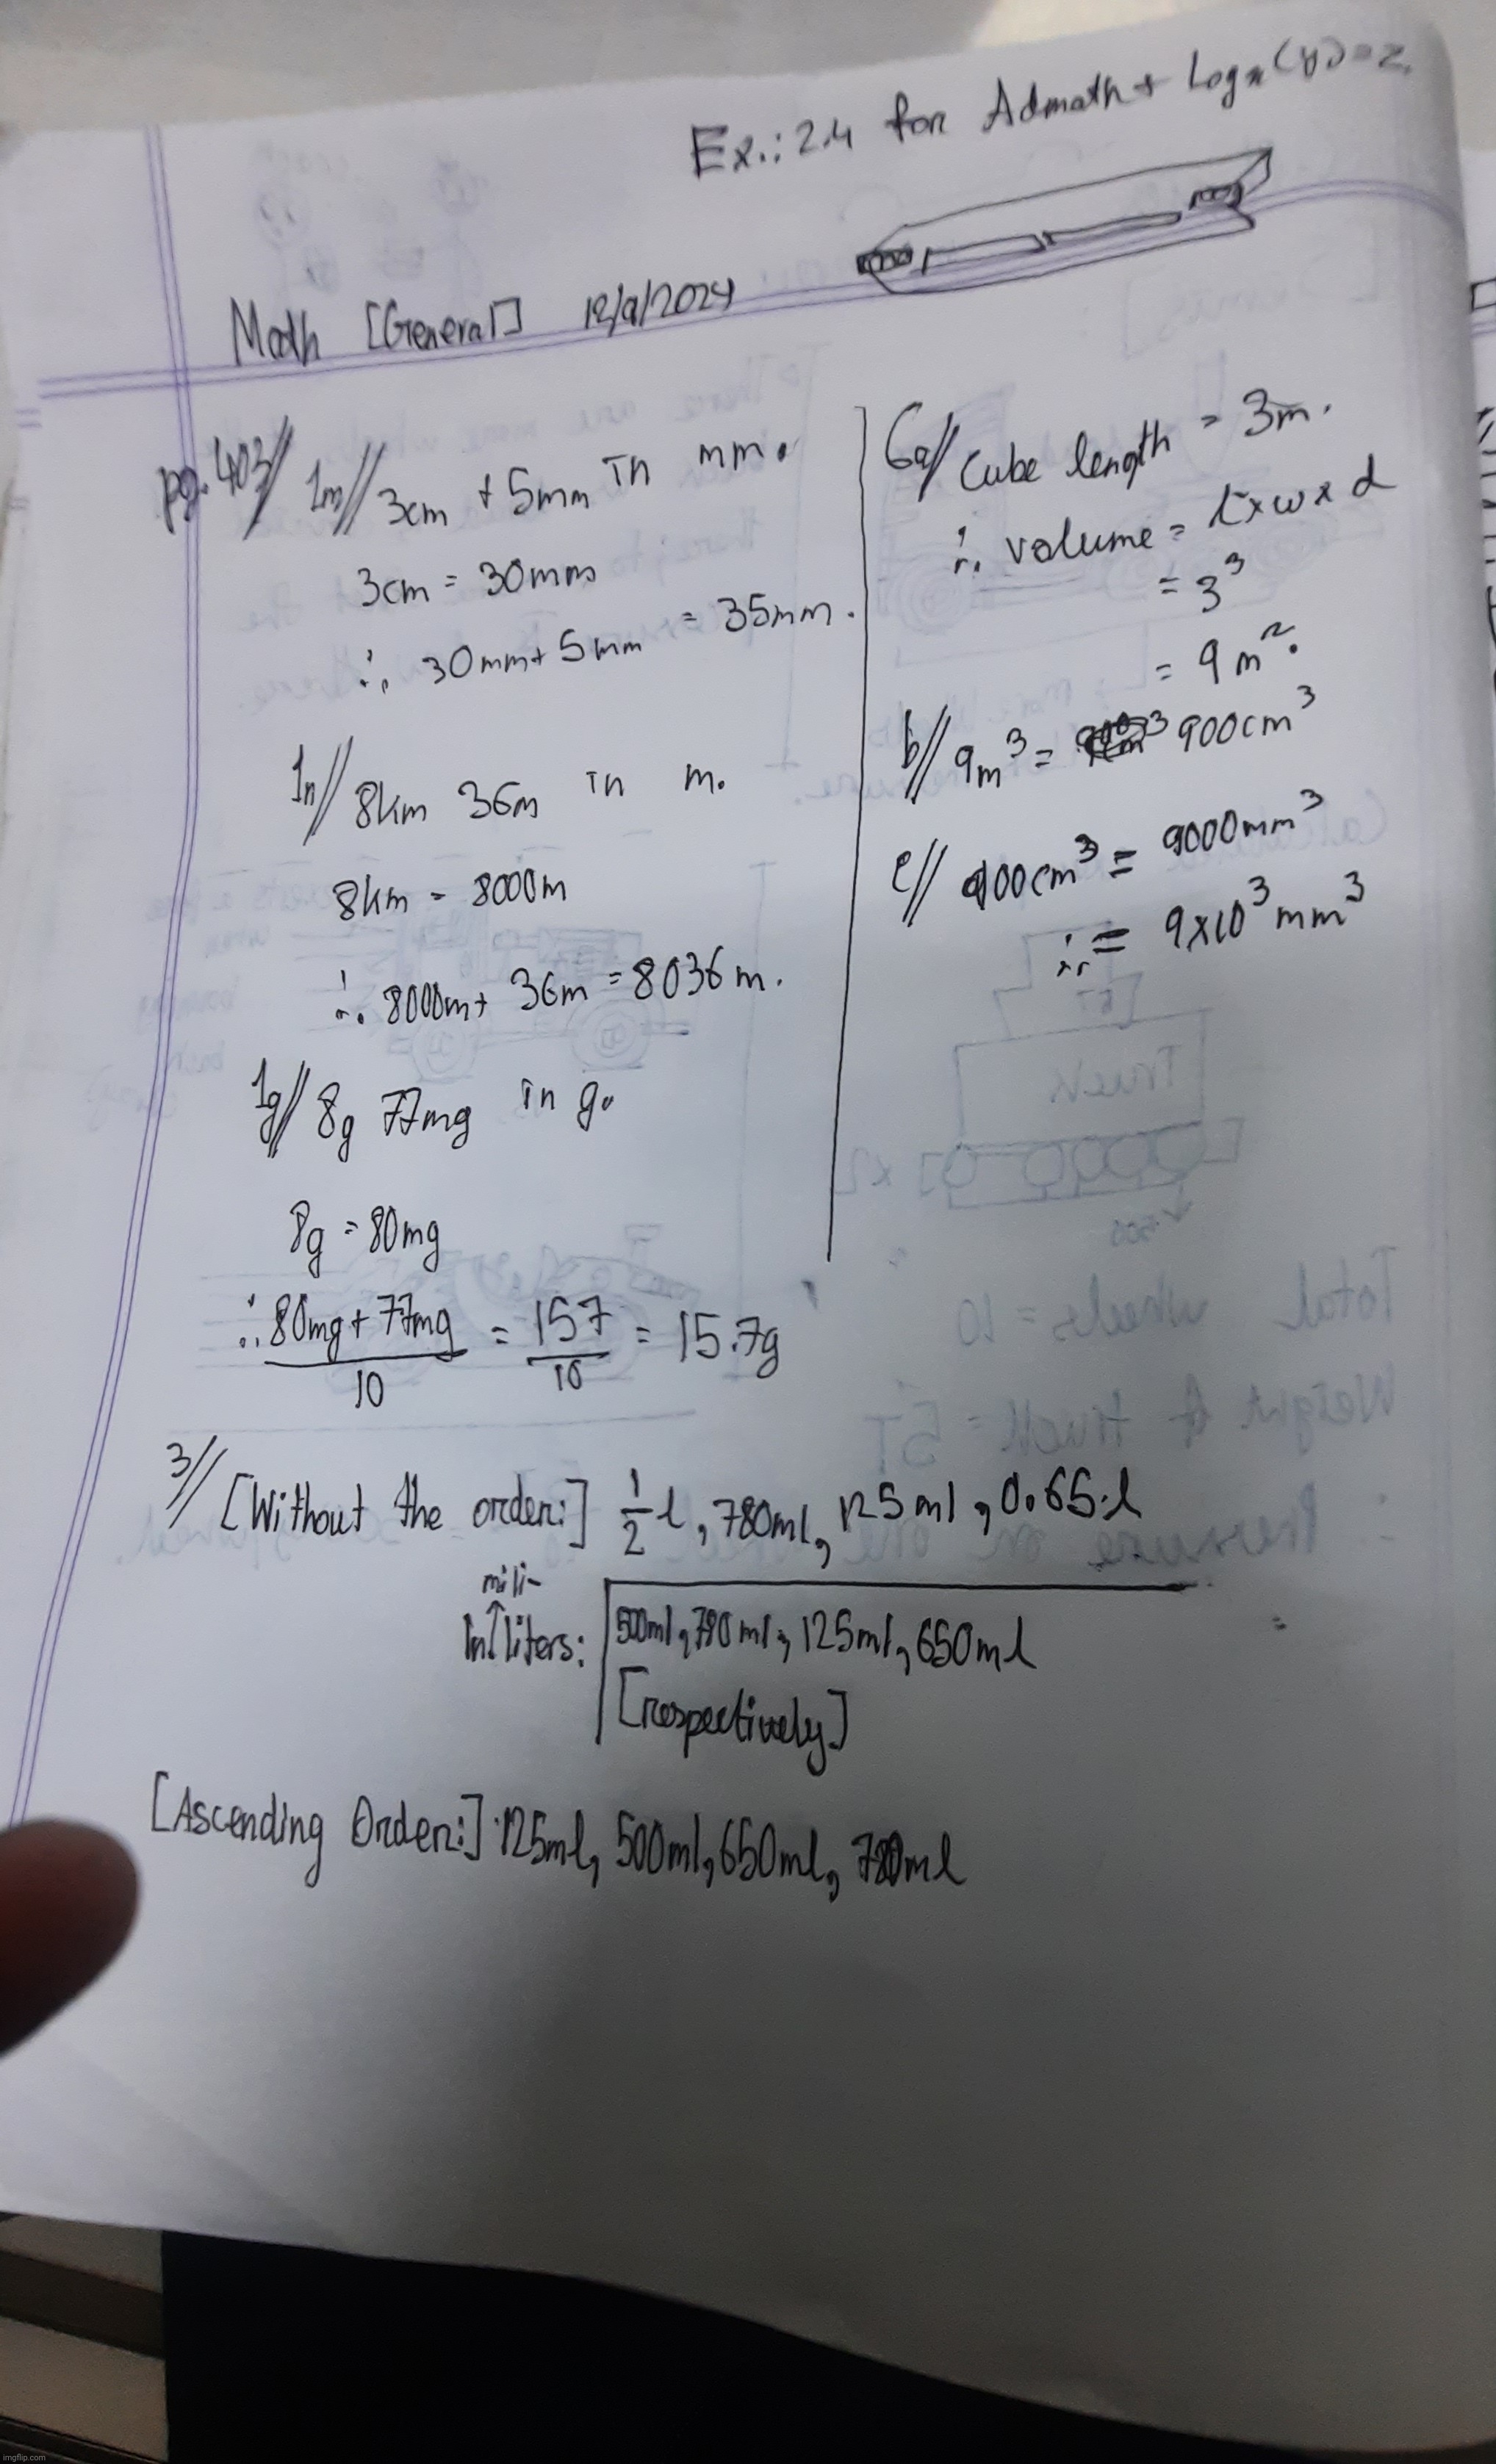 Ex.: 2.4 for Admath + Logx(y)=z.
Math [General] 12/9/2024
pg. 403// 1m// 3cm + 5mm in mm.
3cm = 30mm
∴ 30mm + 5mm = 35mm.
1n// 8km 36m in m.
8km = 8000m
∴ 8000m + 36m = 8036m.
1g// 8g 77mg in g.
8g = 80mg
∴ 80mg + 77mg / 10 = 157 / 10 = 15.7g
6a// Cube length = 3m.
∴ volume = l x w x d
= 3³
= 9m².
b// 9m³ = 900cm³
c// 900cm³ = 9000mm³
∴ = 9x10³mm³
3// [Without the order:] 1/2 l, 780ml, 125ml, 0.65l
mili-
In liters: 500ml, 780ml, 125ml, 650ml
[respectively]
[Ascending Order:] 125ml, 500ml, 650ml, 780ml
imgflip.com